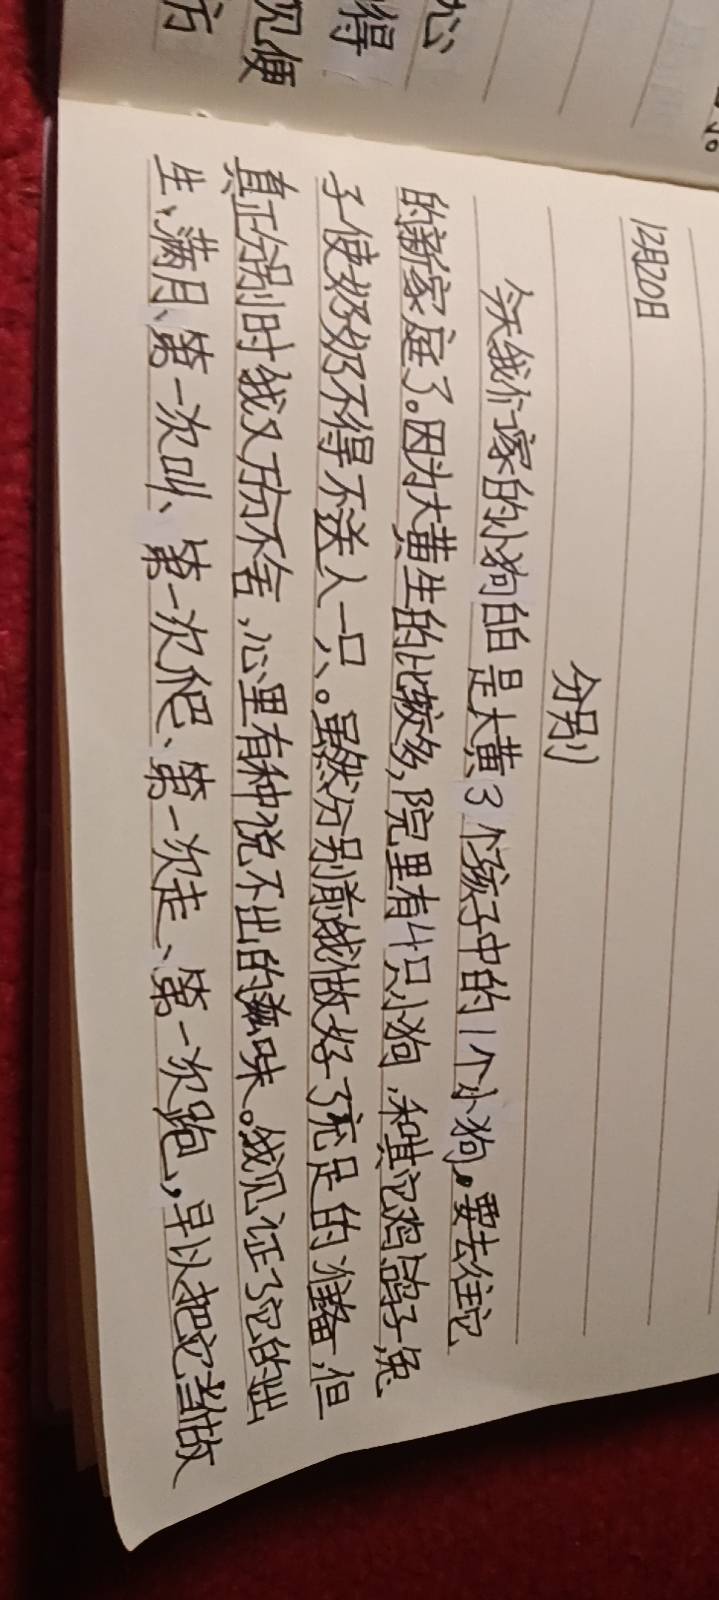 心
得
见便
方
12月20日
分别
今天我们家的小狗白白是大黄3个孩子中的1个小狗。要去往它
的新家庭了。因为大黄生的比较多,院里有4只小狗,和其它鸡鸽子兔
子使奶奶不得不送人一只。虽然分别前我做好了充足的准备,但
真正分别时我又万分不舍,心里有种说不出的滋味。我见证了它的出
生、满月、第一次叫、第一次爬、第一次走、第一次跑,早以把它当做